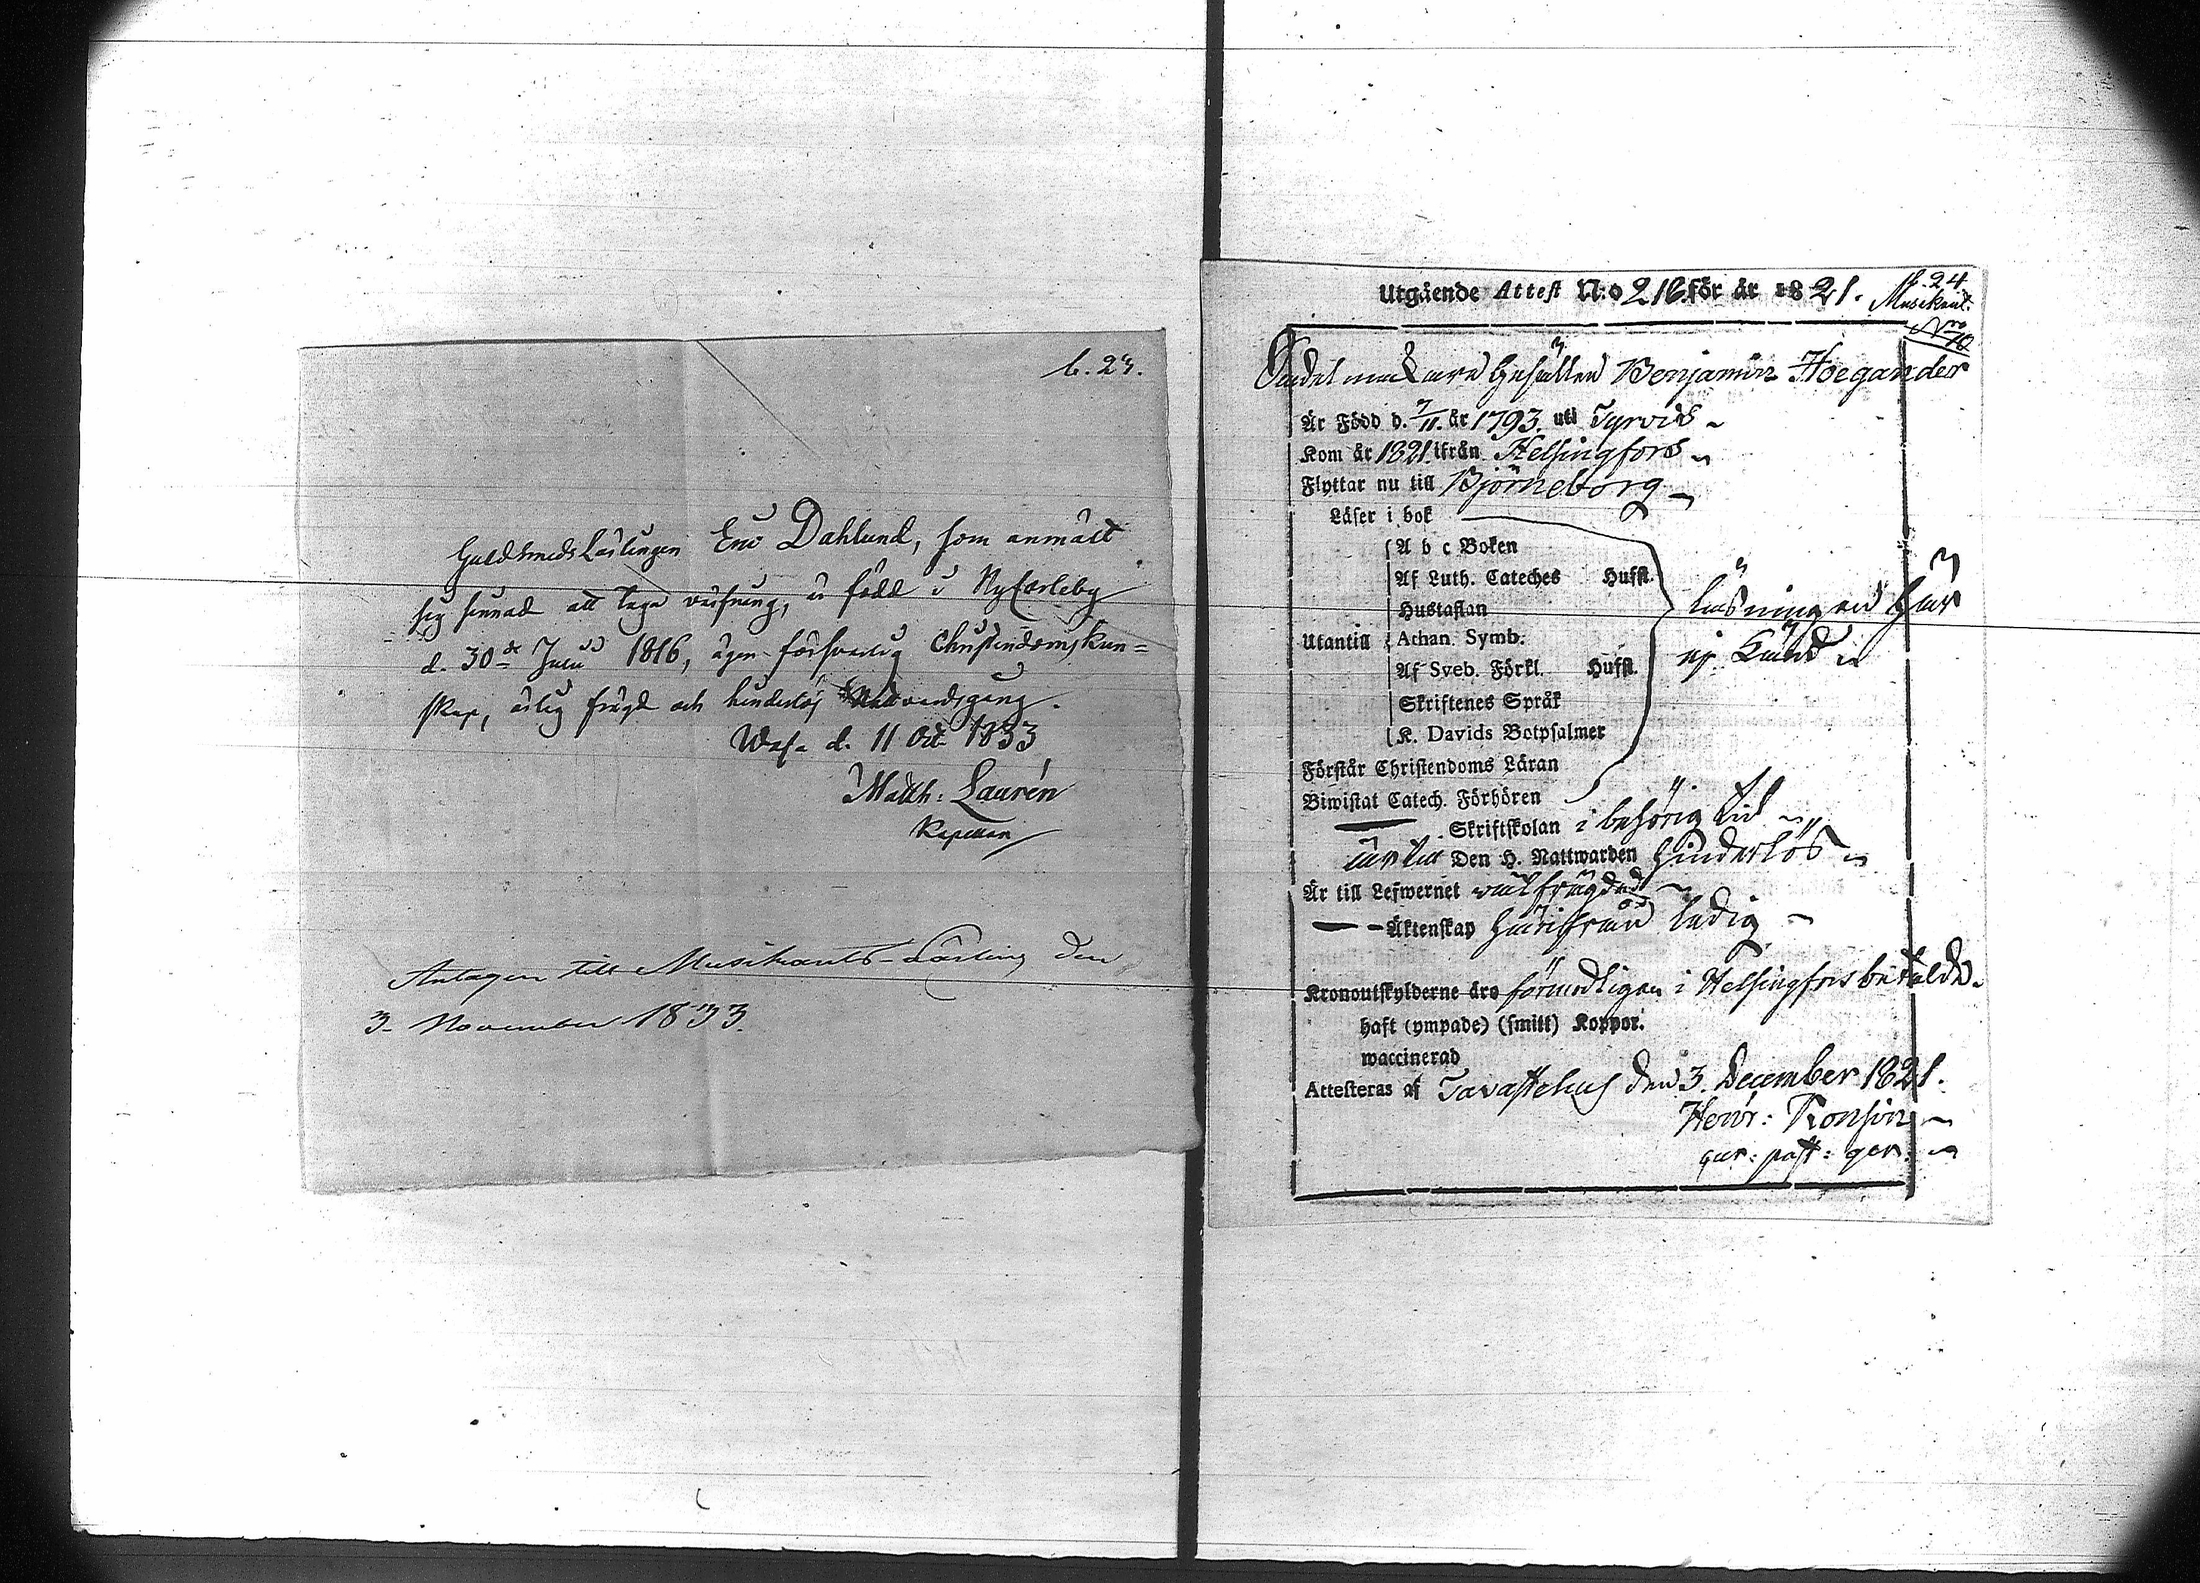 b. 23.
Guldsmeds Lärlingen Eric Dahlund, som anmält
sig sinnad att taga värfning, är född i NyCarleby
d. 30de Julii 1816, äger försvarlig Christendomskun=
skap, ärlig frägd och hinderlös Nattvardsgång.
Wasa d. 11 Oct. 1833
Matth: Laurén
Kapellan
Antagen till Musikants-Lärling den
3 November 1833.
Utgående Attest N:o 216 för år 1821.
b. 24.
Musikant.
Nro 10
Sadelmakare Gesällen Benjamin Hoegander
Är Född d. 7/11. år 1793. uti Tyrvis
Kom år 1821. ifrån Helsingfors
Flyttar nu till Björneborg
Läser i bok
A b c Boken
Af Luth. Cateches Hufst.
Hustaflan
Utantill Athan. Symb.
Af Sveb. Förkl. Hufst.
Skriftenes Språk
K. Davids Botpsalmer
läsningen här
ej känd
Förstår Christendoms Läran
Biwistat Catech. Förhören
Skriftskolan i behörig tid
Den H. Nattwarden hinderlös
Är till Lefwernet wälfrägdad
Äktenskap härifrån ledig
Kronoutskylderne äro förmodligen i Helsingfors betalde.
haft (ympade) (smitt) Koppor.
waccinerad
Attesteras af Tavastehus den 3. December 1821.
Henr: Konsin
past: